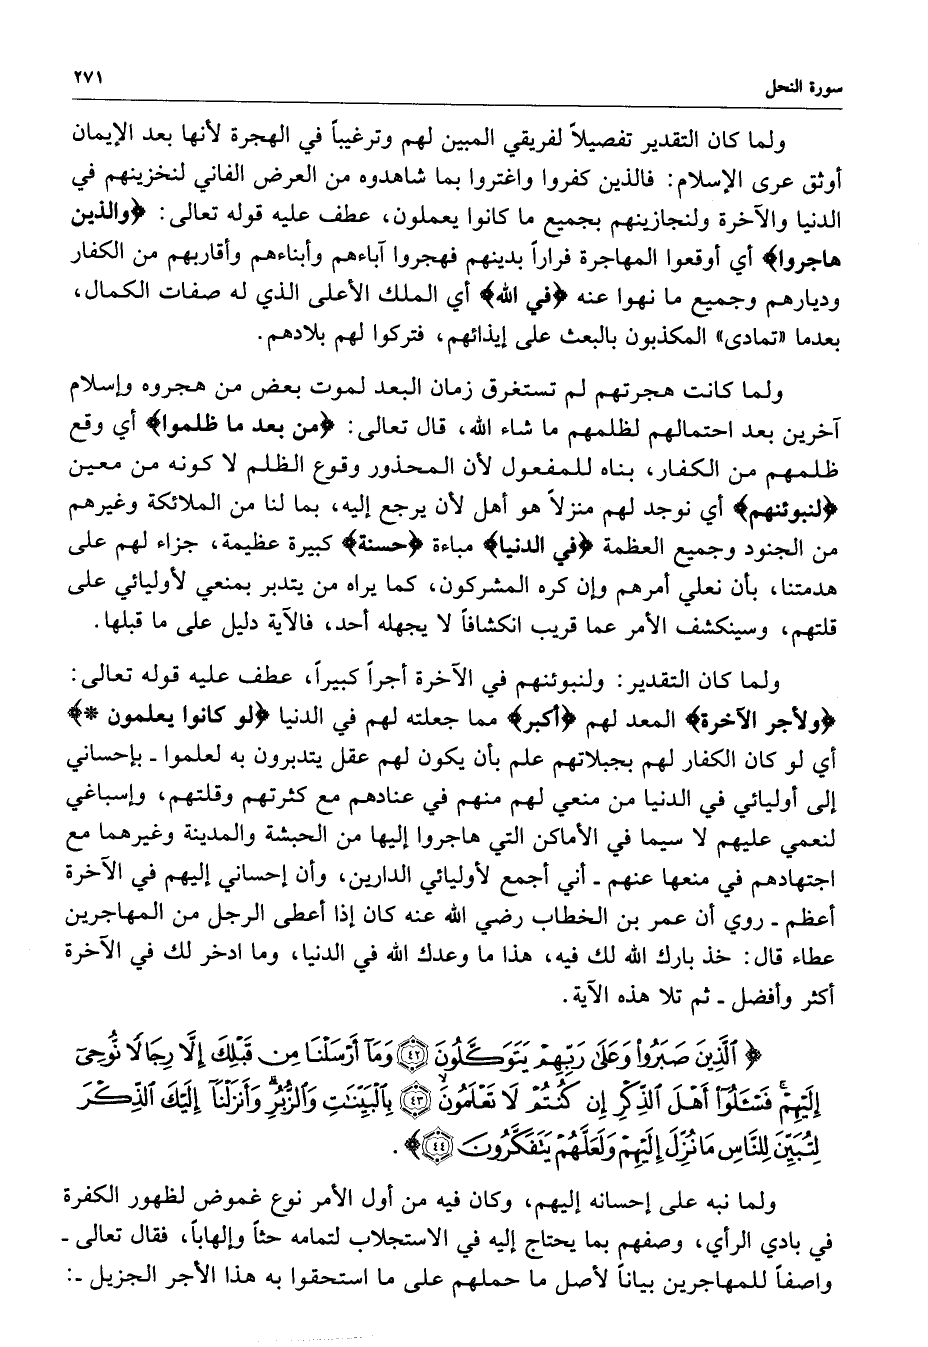 سورة النحل
٢٧١
ولما كان التقدير تفصيلاً لفريقي المبين لهم وترغيباً في الهجرة لأنها بعد الإيمان
أوثق عرى الإسلام: فالذين كفروا واغتروا بما شاهدوه من العرض الفاني لنخزينهم في
الدنيا والآخرة ولنجازينهم بجميع ما كانوا يعملون، عطف عليه قوله تعالى: ﴿والذين
هاجروا﴾ أي أوقعوا المهاجرة فراراً بدينهم فهجروا آباءهم وأبناءهم وأقاربهم من الكفار
وديارهم وجميع ما نهوا عنه ﴿في الله﴾ أي الملك الأعلى الذي له صفات الكمال،
بعدما «تمادى» المكذبون بالبعث على إيذائهم، فتركوا لهم بلادهم.
ولما كانت هجرتهم لم تستغرق زمان البعد لموت بعض من هجروه وإسلام
آخرين بعد احتمالهم لظلمهم ما شاء الله، قال تعالى: ﴿من بعد ما ظلموا﴾ أي وقع
ظلمهم من الكفار، بناه للمفعول لأن المحذور وقوع الظلم لا كونه من معين
﴿لنبوئنهم﴾ أي نوجد لهم منزلاً هو أهل لأن يرجع إليه، بما لنا من الملائكة وغيرهم
من الجنود وجميع العظمة ﴿في الدنيا﴾ مباءة ﴿حسنة﴾ كبيرة عظيمة، جزاء لهم على
هدمتنا، بأن نعلي أمرهم وإن كره المشركون، كما يراه من يتدبر بمنعي لأوليائي على
قلتهم، وسينكشف الأمر عما قريب انكشافاً لا يجهله أحد، فالآية دليل على ما قبلها.
ولما كان التقدير: ولنبوئنهم في الآخرة أجراً كبيراً، عطف عليه قوله تعالى:
﴿ولأجر الآخرة﴾ المعد لهم ﴿أكبر﴾ مما جعلته لهم في الدنيا ﴿لو كانوا يعلمون *﴾
أي لو كان الكفار لهم بجبلاتهم علم بأن يكون لهم عقل يتدبرون به لعلموا ـ بإحساني
إلى أوليائي في الدنيا من منعي لهم منهم في عنادهم مع كثرتهم وقلتهم، وإسباغي
لنعمي عليهم لا سيما في الأماكن التي هاجروا إليها من الحبشة والمدينة وغيرهما مع
اجتهادهم في منعها عنهم ـ أني أجمع لأوليائي الدارين، وأن إحساني إليهم في الآخرة
أعظم ـ روي أن عمر بن الخطاب رضي الله عنه كان إذا أعطى الرجل من المهاجرين
عطاء قال: خذ بارك الله لك فيه، هذا ما وعدك الله في الدنيا، وما ادخر لك في الآخرة
أكثر وأفضل ـ ثم تلا هذه الآية.
﴿ٱلَّذِينَ صَبَرُوا۟ وَعَلَىٰ رَبِّهِمْ يَتَوَكَّلُونَ ۝٤٢ وَمَآ أَرْسَلْنَا مِن قَبْلِكَ إِلَّا رِجَالًا نُّوحِىٓ
إِلَيْهِمْ ۚ فَسْـَٔلُوٓا۟ أَهْلَ ٱلذِّكْرِ إِن كُنتُمْ لَا تَعْلَمُونَ ۝٤٣ بِٱلْبَيِّنَـٰتِ وَٱلزُّبُرِ ۗ وَأَنزَلْنَآ إِلَيْكَ ٱلذِّكْرَ
لِتُبَيِّنَ لِلنَّاسِ مَا نُزِّلَ إِلَيْهِمْ وَلَعَلَّهُمْ يَتَفَكَّرُونَ ۝٤٤﴾.
ولما نبه على إحسانه إليهم، وكان فيه من أول الأمر نوع غموض لظهور الكفرة
في بادي الرأي، وصفهم بما يحتاج إليه في الاستجلاب لتمامه حثاً وإلهاباً، فقال تعالى ـ
واصفاً للمهاجرين بياناً لأصل ما حملهم على ما استحقوا به هذا الأجر الجزيل ـ: